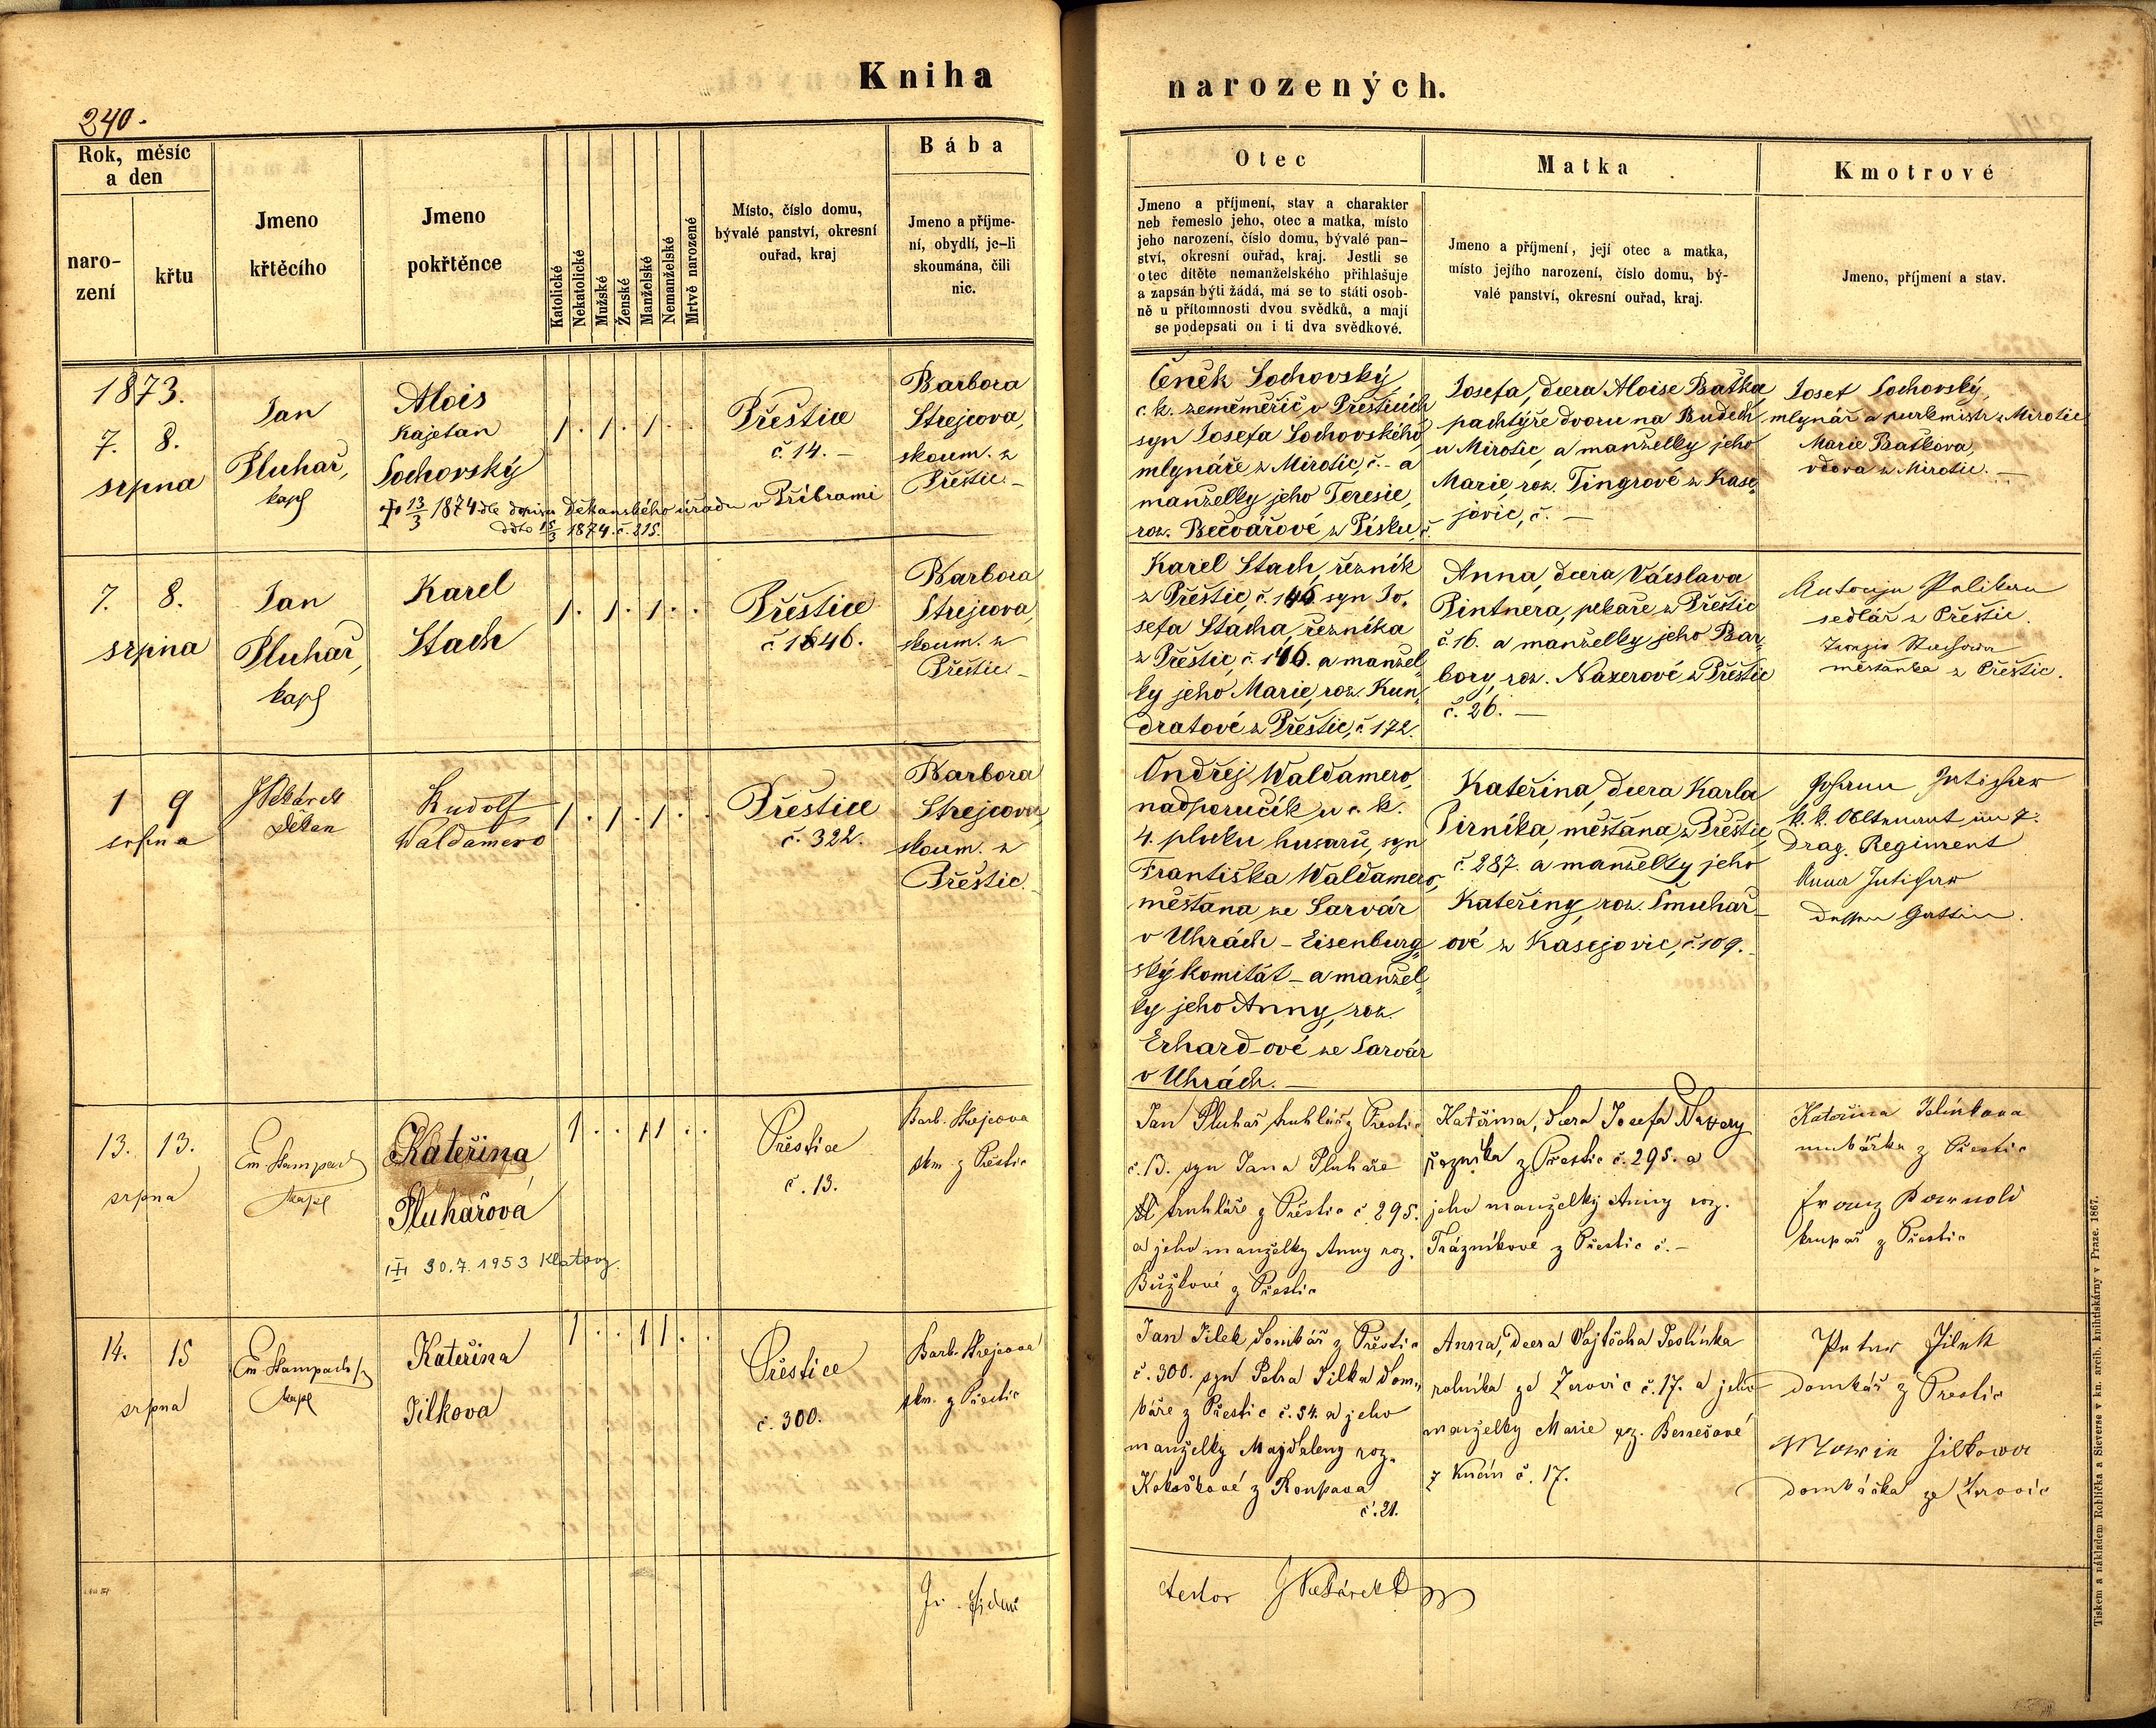 Kniha narozených.
240.
Rok, měsíc
a den
naro-
zení
křtu
Jmeno
křtěcího
Jmeno
pokřtěnce
Katolické
Nekatolické
Mužské
Ženské
Manželské
Nemanželské
Mrtvě narozené
Místo, číslo domu,
bývalé panství, okresní
ouřad, kraj
Bába
Jmeno a příjme-
ní, obydlí, je-li
skoumána, čili
nic.
Otec
Jmeno a příjmení, stav a charakter
neb řemeslo jeho, otec a matka, místo
jeho narození, číslo domu, bývalé pan-
ství, okresní ouřad, kraj. Jestli se
otec dítěte nemanželského přihlašuje
a zapsán býti žádá, má se to státi osob-
ně u přítomnosti dvou svědků, a mají
se podepsati on i ti dva svědkové.
Matka
Jmeno a příjmení, její otec a matka,
místo jejího narození, číslo domu, bý-
valé panství, okresní ouřad, kraj.
Kmotrové
Jmeno, příjmení a stav.
1873.
7. 8.
srpna
Jan
Pluhař,
kapl
Alois
Kajetan
Sochovský
13/3 1874 dle dopisu Děkanského úřadu v Příbrami
ddto 15/3 1874. č. 215.
1 . 1 . 1 . .
Přeštice
č. 14. –
Barbora
Strejcova,
skoum. z
Přeštic. –
Čeněk Sochovský,
c. k. zeměměřič v Přešticích
syn Josefa Sochovského
mlynáře z Mirotic, č. – a
manželky jeho Teresie,
roz. Bečvářové z Písku, č.
Josefa, dcera Aloise Baťka
pachtýře dvoru na Budech
u Mirotic, a manželky jeho
Marie, roz. Tingrové z Kase-
jovic, č. –
Josef Sochovský,
mlynář a purkmistr z Mirotic
Marie Baťkova,
vdova z Mirotic. –
7. 8.
srpna
Jan
Pluhař,
kapl
Karel
Stach
1 . 1 . 1 . .
Přeštice
č. 146.
Barbora
Strejcova,
skoum. z
Přeštic. –
Karel Stach, řezník
z Přeštic, č. 146 syn Jo-
sefa Stacha, řezníka
z Přeštic, č. 146. a manžel-
ky jeho Marie, roz. Kun-
dratové z Přeštic, č. 172.
Anna, dcera Václava
Pintnera, pekaře z Přeštic
č. 16. a manželky jeho Bar-
bory, roz. Naxerové z Přeštic
č. 26. –
sedlář z Přeštic.
měšťanka z Přeštic.
1 9
srpna
děkan
Rudolf
Waldamero
1 . 1 . 1 . .
Přeštice
č. 322.
Barbora
Strejcova,
skoum. z
Přeštic. –
Ondřej Waldamero,
nadporučík u c. k.
4. pluku husarů, syn
Františka Waldamero,
měšťana ze Sarvár
v Uhrách – Eisenburg-
ský komitát – a manžel-
ky jeho Anny, roz.
Erhard-ové ze Sarvár
v Uhrách. –
Kateřina, dcera Karla
Pirníka, měšťana z Přeštic,
č. 287. a manželky jeho
Kateřiny, roz. Smuhař-
ové z Kasejovic, č. 109. –
Johann
k. k. Obltenant im 7.
Drag. Regiment
Anna
dessen Gattin.
13. 13.
srpna
Em. Stampach
kapl
Kateřina
Pluhařová
30.7.1953 Klatovy.
1 . . 1 1 . .
Přeštice
č. 13.
Barb. Strejcova
skm. z Přeštic
Jan Pluhař truhlář z Přeštic
č. 13. syn Jana Pluhaře
truhláře z Přeštic č. 295.
a jeho manželky Anny roz.
z Přeštic
Kateřina, dcera Josefa Naxery
řezníka z Přeštic č. 295. a
jeho manželky Anny roz.
Trázníkové z Přeštic č. –
Kateřina
z Přeštic
Franz
krupař z Přeštic
14. 15
srpna
Em. Stampach
kapl
Kateřina
Jílkova
1 . . 1 1 . .
Přeštice
č. 300.
Barb. Strejcova
skm. z Přeštic
Jan Jílek domkář z Přeštic
č. 300. syn Petra Jílka dom-
káře z Přeštic č. 54. a jeho
manželky Majdaleny roz.
z Roupova
č. 21.
Anna, dcera Vojtěcha
rolníka ze Žerovic č. 17. a jeho
manželky Marie roz. Benešové
z Kucín č. 17.
Peter Jílek
domkář z Přeštic
Marie Jílkowa
domkářka ze Žerovic
Tiskem a nákladem Rohlíčka a Sieverse v kn. arcib. knihtiskárny v Praze. 1867.